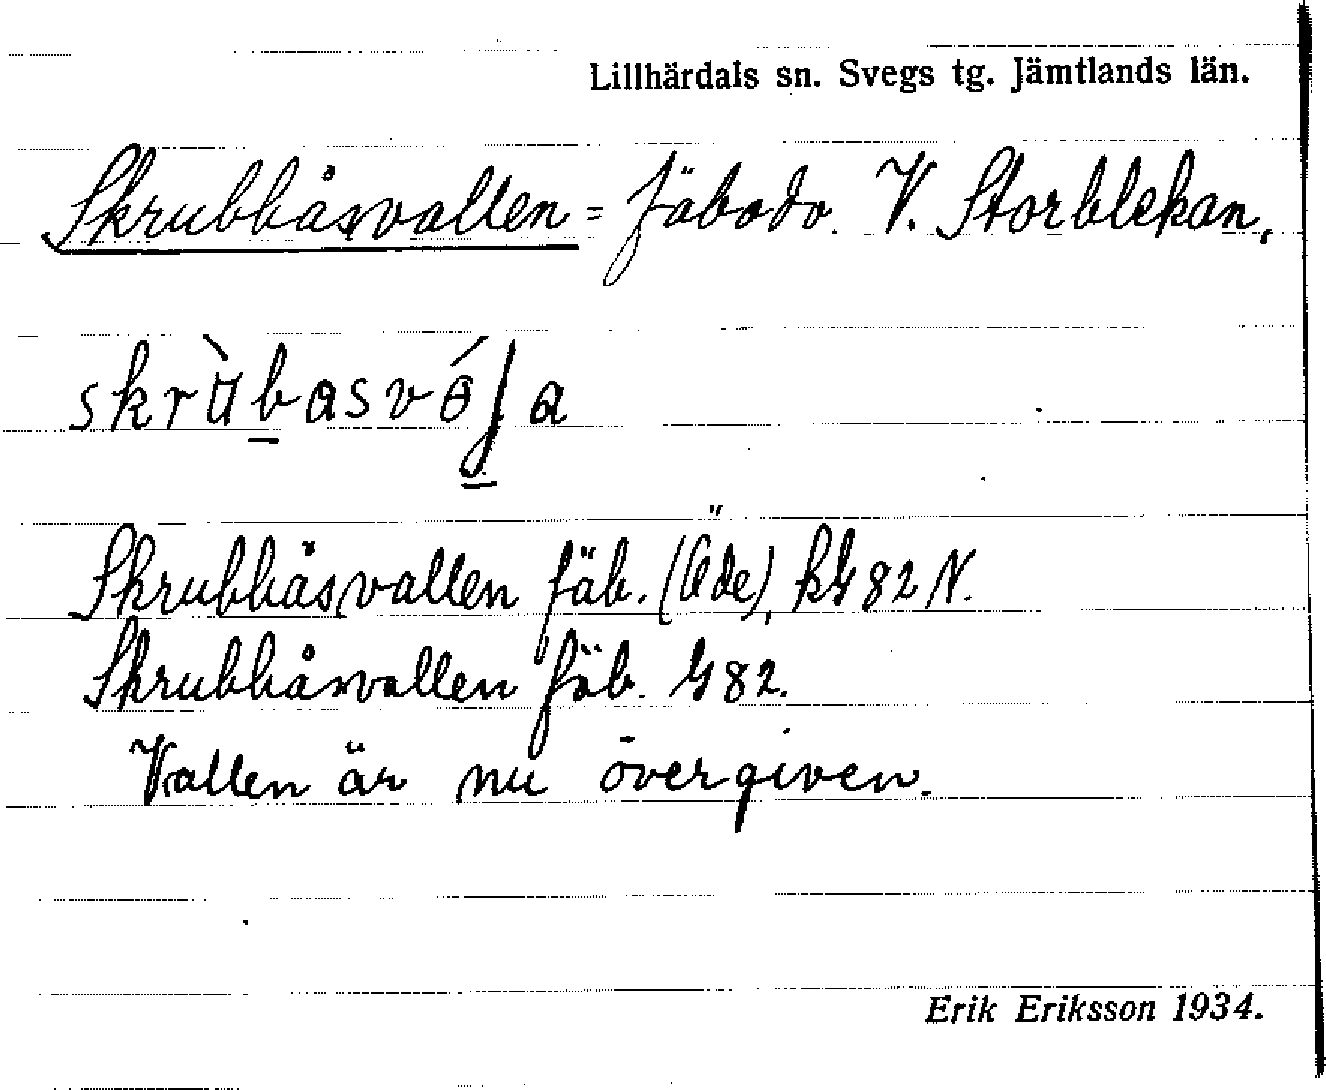 Lillhärdals sn. Svegs tg. Jämtlands län.
Skrubbåsvallen = fäbodv. V. Storblekan,
Skrubbåsvallen fäb. (Öde), kG 82 N.
Skrubbåsvallen fäb. G 82.
Vallen är nu övergiven.
Erik Eriksson 1934.